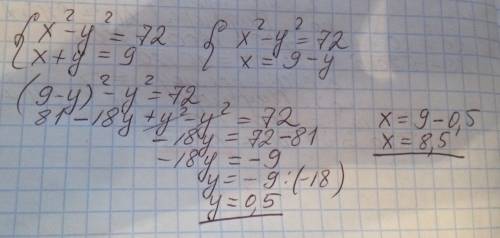 { x² - y² = 72
x + y = 9
{ x² - y² = 72
x = 9 - y
(9 - y)² - y² = 72
81 - 18y + y² - y² = 72
- 18y = 72 - 81
- 18y = - 9
y = - 9 : (-18)
y = 0,5
x = 9 - 0,5
x = 8,5